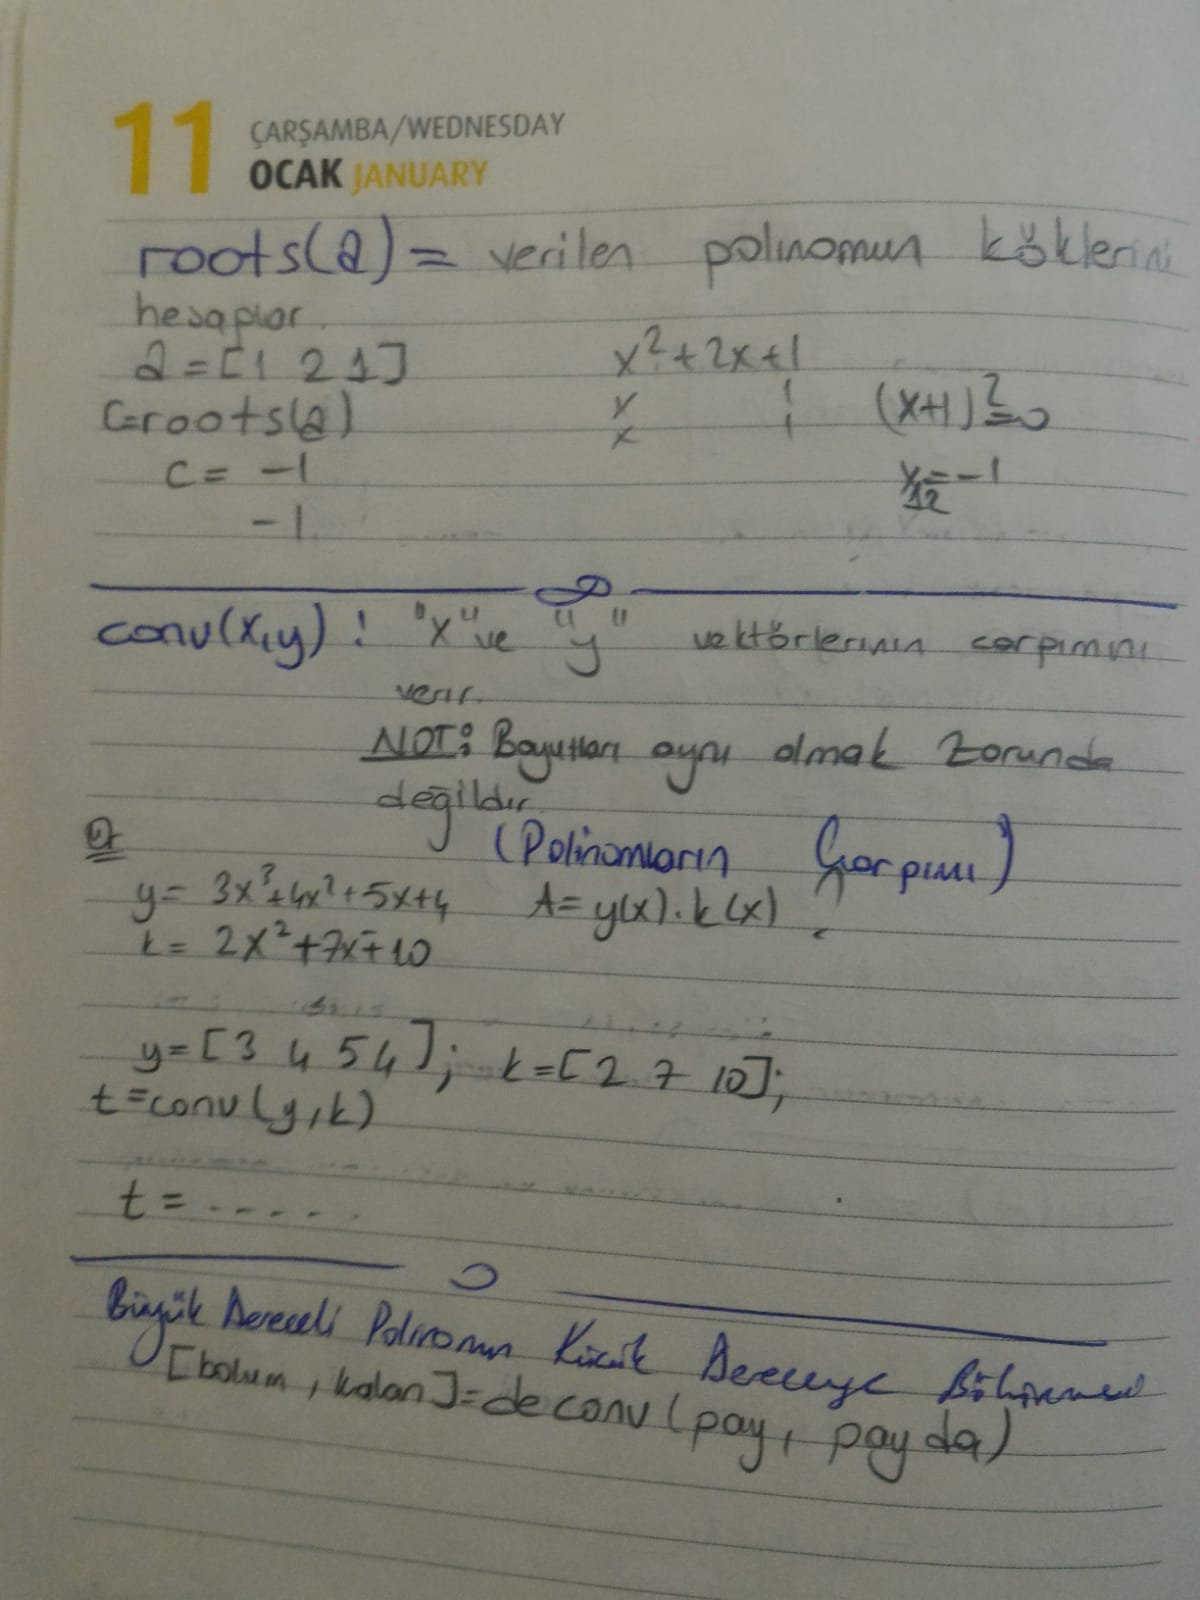 11 ÇARŞAMBA/WEDNESDAY
OCAK JANUARY
roots(a) = verilen polinomun köklerini
hesaplar.
a = [1 2 1] x²+2x+1
c=roots(a) x 1 (x+1)²=0
c = -1 x 1 x₁₂=-1
-1
conv(x,y) : "x" ve "y" vektörlerinin çarpımını
verir.
NOT: Boyutları aynı olmak zorunda
değildir.
(Polinomların Çarpımı)
y= 3x³+4x²+5x+4 A= y(x).k(x)
k= 2x²+7x+10
y=[3 4 5 4]; k=[2 7 10];
t=conv(y,k)
t = .....
Büyük Dereceli Polinomun Küçük Dereceye Bölünmesi
[bolum, kalan]=deconv(pay, payda)